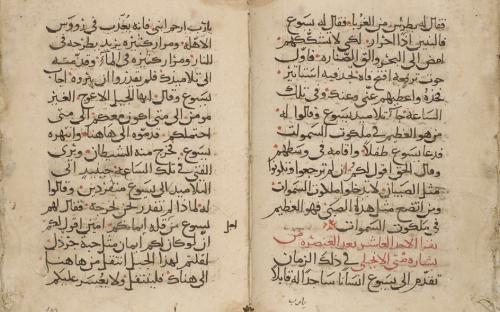 فقال له بطرس من الغربا فقال له يسوع
فالبنين اذًا احرار لكي لا نشككهم
امض الى البحر والق الصناره فاول
حوت ترتفعه افتح فاه تجد فيه استاتير
فخذه واعطيهم عني وعنك وفي تلك
الساعة جا تلاميذ يسوع وقالوا له
من هو العظيم في ملكوت السموات
فدعا يسوع طفلًا واقامه في وسطهم
وقال الحق اقول لكم ان لم ترجعوا وتكونوا
مثل الصبيان لا تدخلوا ملكوت السموات
ومن اتضع مثل هذا الصبي فهو العظيم
في ملكوت السموات
يقرا الاحد العاشر بعد العنصره من
بشارة متى الانجيلي في ذلك الزمان
تقدم الى يسوع انسانا ساجدا له قايلا
يارب
يا رب ارحم ابني فانه يعذب في رووس
الاهله ومرار كثيرة يريد يطرحه في
النار ومرار كثيرة في الماء وقدمته
الى تلاميذك فلم يقدروا ان يبروه اجاب
يسوع وقال ايها الجيل الاعوج الغير
مومن الى متى اكون معكم الى متى
احتملكم قدموه الى هاهنا وانتهره
يسوع فخرج منه الشيطان وبرى
الفتى في تلك الساعة حينيذ
التلاميذ الى يسوع منفردين وقالوا
له لماذا لم نقدر نحن نخرجه فقال لهم
يسوع من قلة ايمانكم امين اقول لكم
اجل
ان لو كان لكم ايمان مثل حبة خردل
لقلتم لهذا الجبل انتقل من هاهنا
الى هناك فينتقل ولا يعسر عليكم